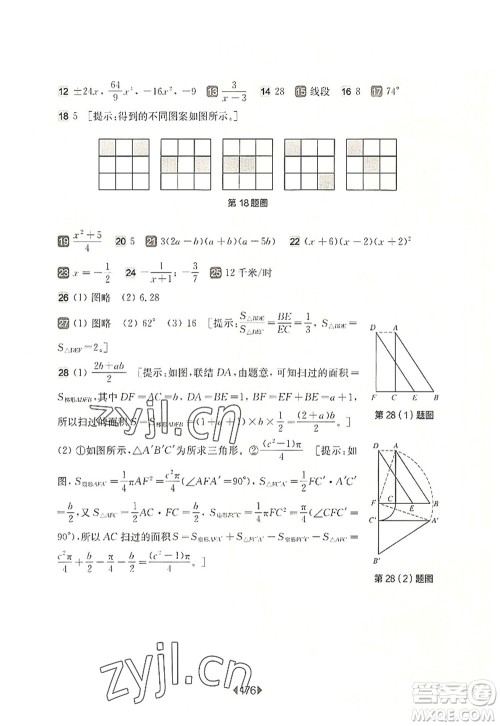 12 ±24x, 64/9 x², -16x², -9 13 3/(x-3) 14 28 15 线段 16 8 17 74°
18 5 [提示:得到的不同图案如图所示。]
第18题图
19 (x²+5)/4 20 5 21 3(2a-b)(a+b)(a-5b) 22 (x+6)(x-2)(x+2)²
23 x=-1/2 24 -1/(x+1); -3/2 25 12千米/时
26 (1) 图略 (2) 6.28
27 (1) 图略 (2) 62° (3) 16 [提示: S△BDE/S△EDC = BE/EC = 1/3,
S△DEF=2。]
D A
F C B E
第28(1)题图
28 (1) (2b+ab)/2 [提示:如图,联结DA,由题意,可知扫过的面积=
S梯形ADFB,其中DF=AC=b,DA=BE=a,FC=BE=1,
所以扫过的面积=(1+a+1)×b×1/2=(2+a)b/2。]
(2) ①如图所示,△A'B'C'为所求三角形。 ② (c²-1)π/4 [提示:如
图,S扇形AFA'=1/4πAF²=c²π/4(∠AFA'=90°),S△AFC=1/2AC·FC=
b/2,又S△A'FC'=1/2AC·FC=b/2,S扇形CFC'=1/4πFC²=π/4(∠CFC'=
90°),所以AC扫过的面积=S扇形AFA'+S△A'FC'-S△AFC-S扇形CFC'=
c²π/4+b/2-b/2-π/4=(c²-1)π/4。]
D A
F B E
C'
A'
B'
第28(2)题图
zyjl.cn
zyjl.cn
176
答案圈
MXQE.COM